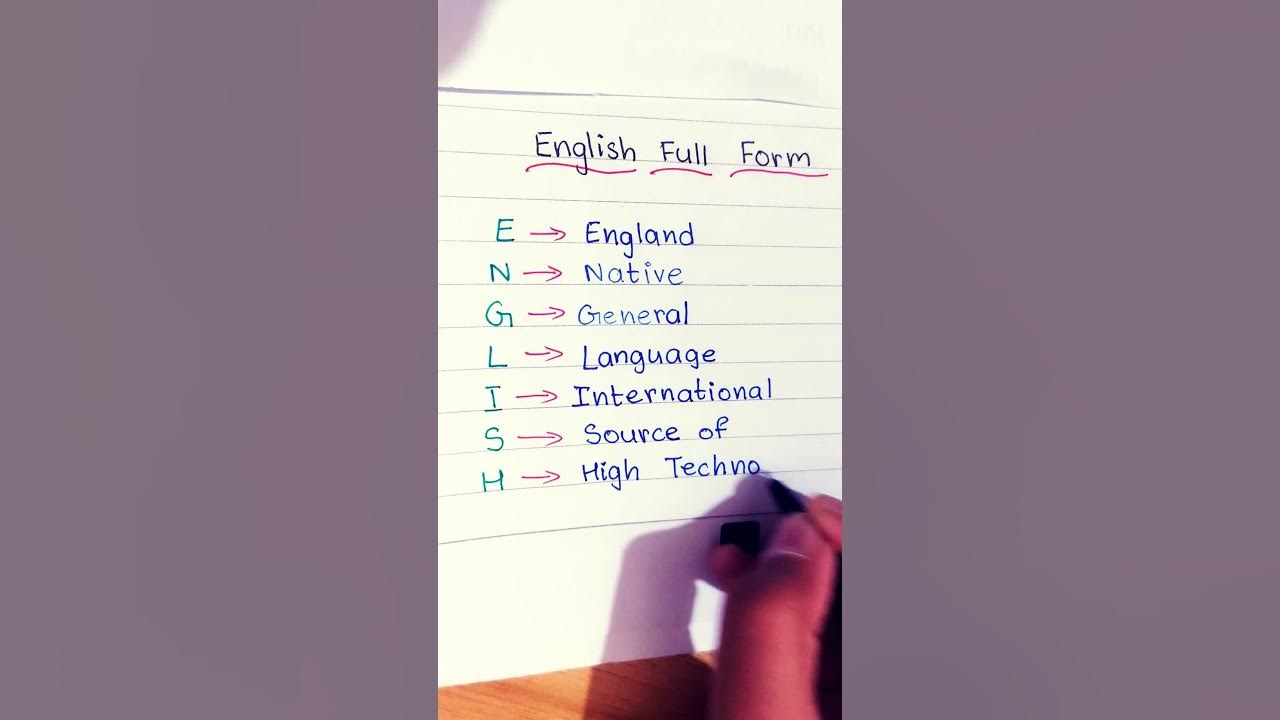 English Full Form
E → England
N → Native
G → General
L → Language
I → International
S → Source of
H → High Techno